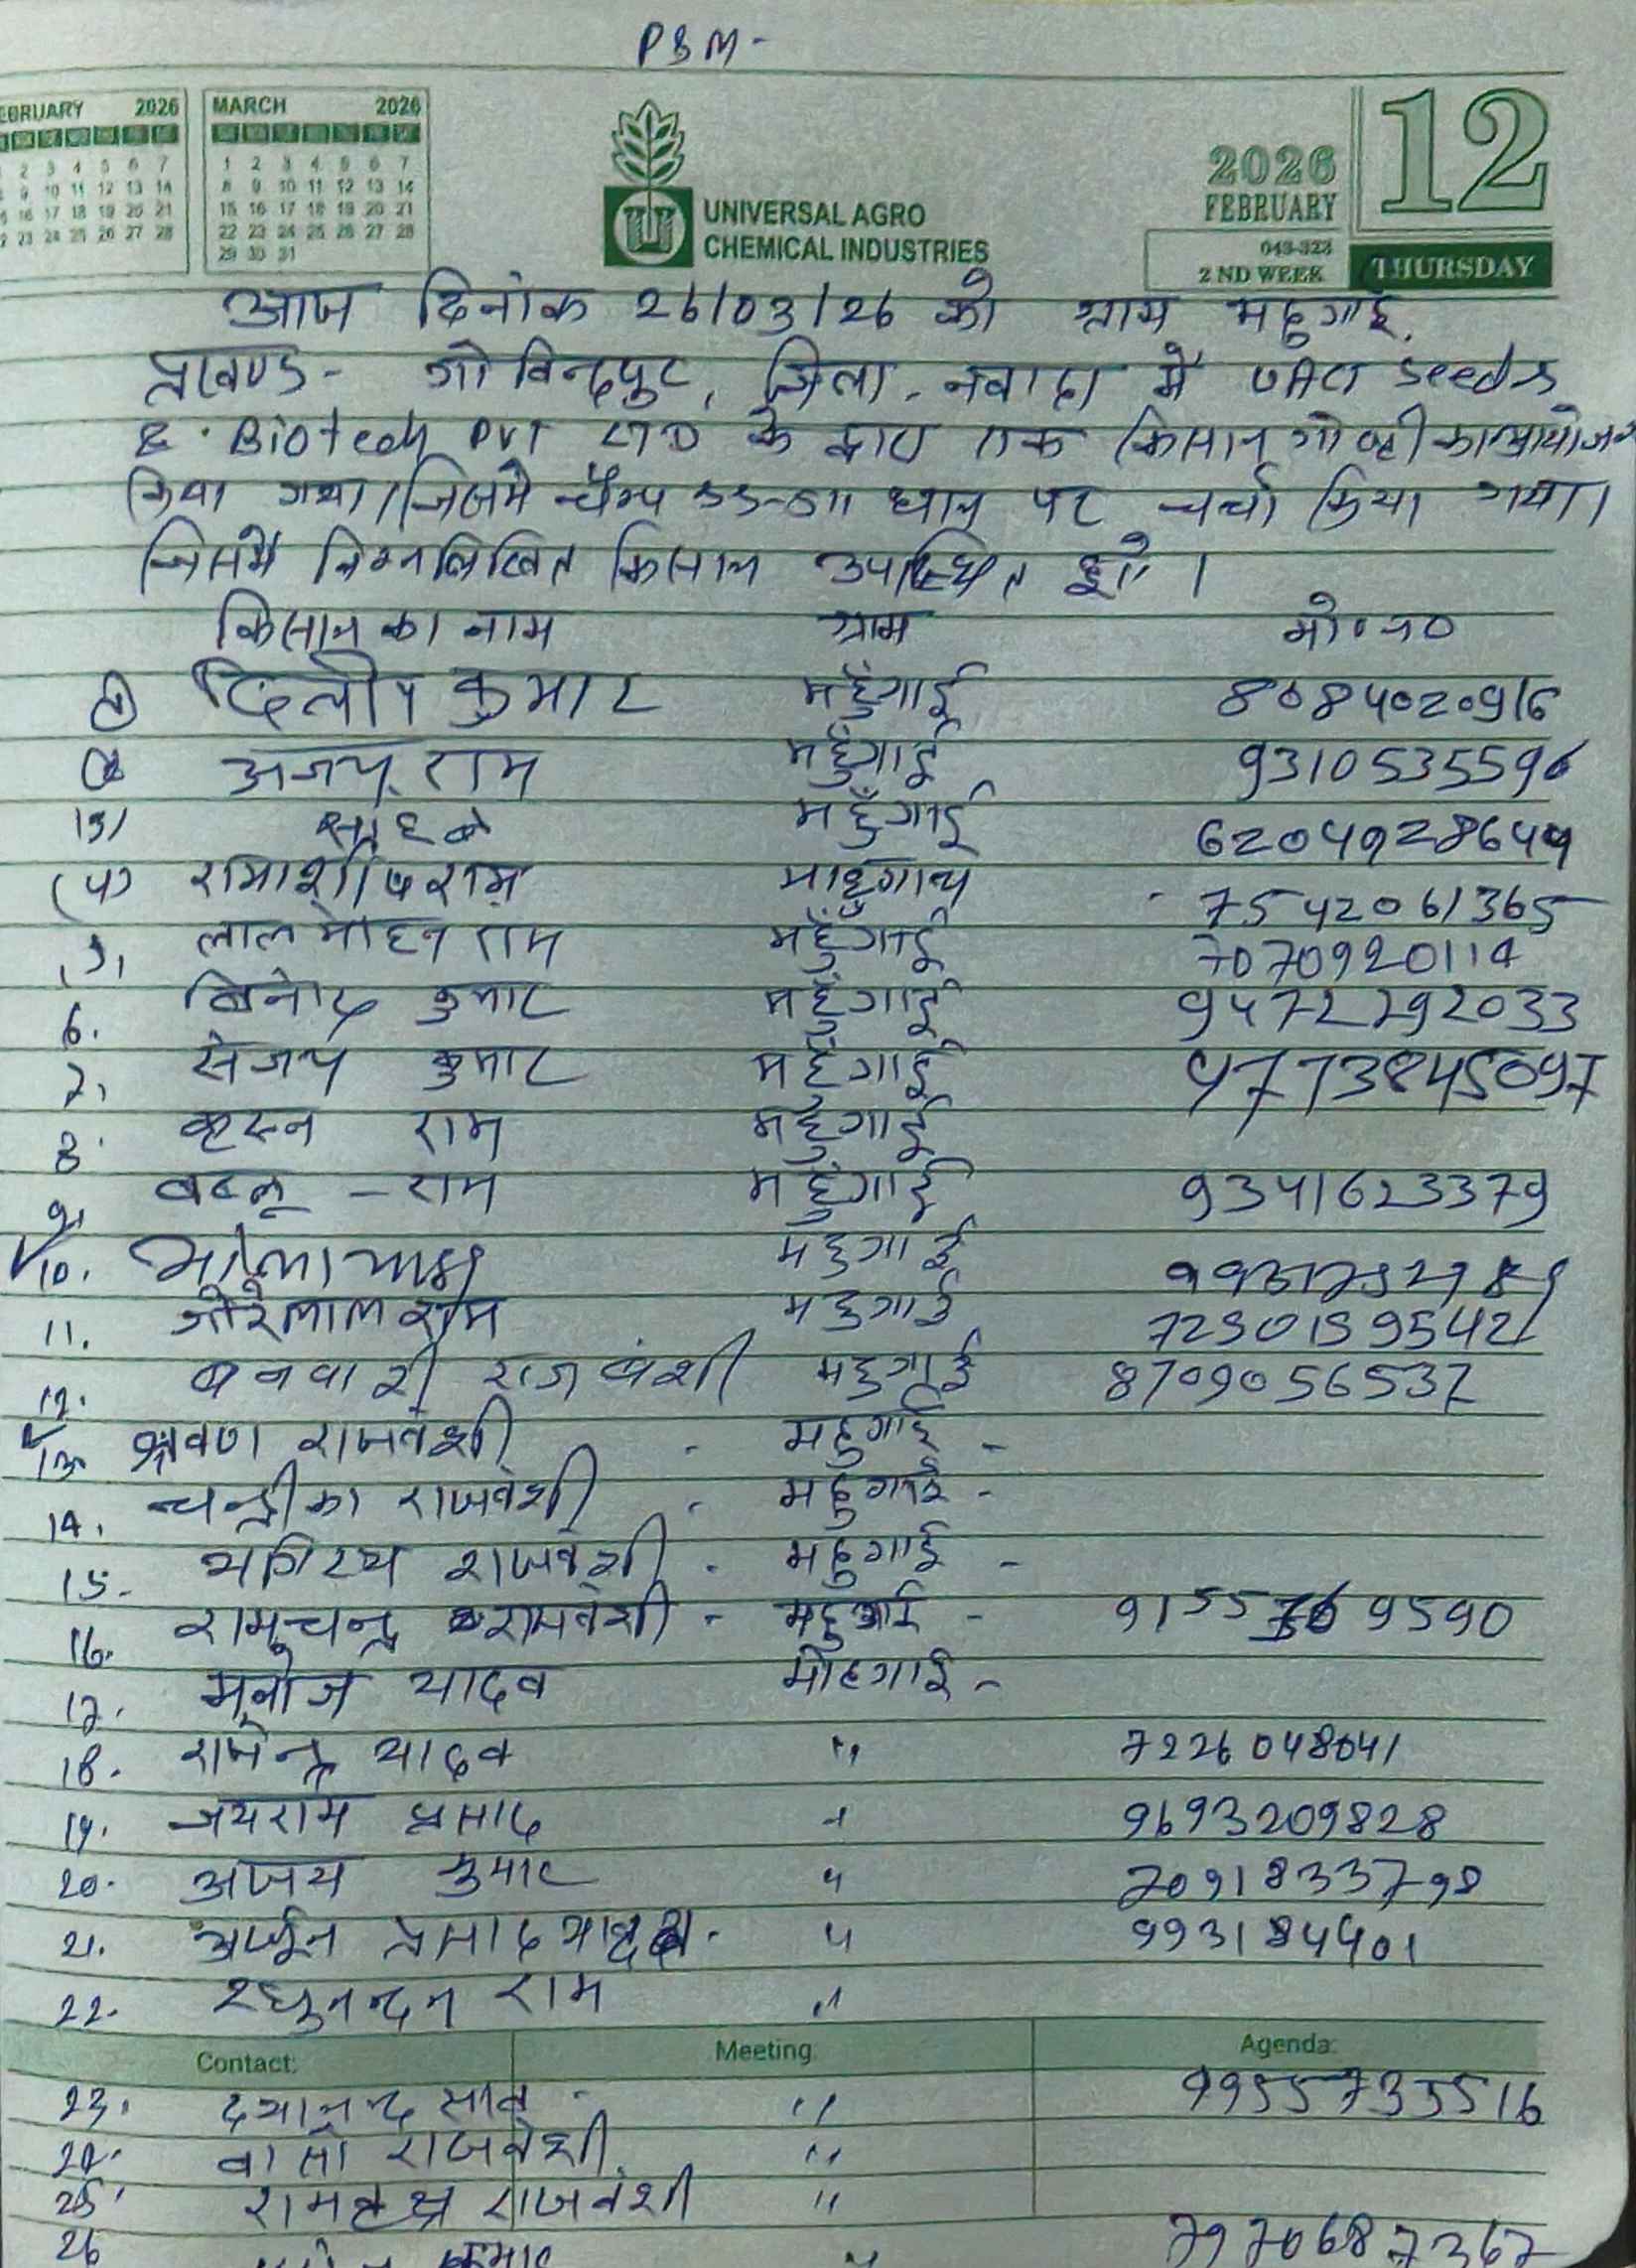 PSM-
FEBRUARY 2026 MARCH 2026
UNIVERSAL AGRO
CHEMICAL INDUSTRIES
2026
FEBRUARY
12
043-322
2 ND WEEK THURSDAY
आज दिनांक 26/03/26 को ग्राम महुगाई,
प्रखण्ड- गोविन्दपुर, जिला - नवादा में UACI seeds
& Biotech PVT LTD के द्वारा एक किसान गोष्ठी का आयोजन
किया गया। जिसमे चैम्प 55-511 धान पर चर्चा किया गया।
जिसमें निम्नलिखित किसान उपस्थित हुए।
किसान का नाम ग्राम मो० न०
दिलीप कुमार महुँगाई 8084020916
अजय राम महुँगाई 9310535596
महुँगाई
(4) राम माहुँगाय 7542061365
लाल मोहन राम महुँगाई 7070920114
6. बिनोद कुमार महुँगाई 9472292033
7. संजय कुमार महुँगाई
8. राम महुँगाई
9. बब्लू - राम महुँगाई 9341623379
10. भोला महुगाई
11. गोरेलाल राम महुगाई
12. बनवारी राजबंशी महुगाई 8709056537
13. श्रवण राजवंशी - महुगाई -
14. चन्द्रीका राजवंशी - महुगाई -
15. भगिरथ राजवंशी - महुगाई -
16. रामचन्द्र राजवंशी - महुगाई -
17. मनोज यादव मोहगाई -
18. राजेन्द्र यादव " 7226048041
19. जयराम प्रसाद " 9693209828
20. अजय कुमार " 7091833798
21. अर्जुन प्रसाद "
22. रघुनन्दन राम "
Contact: Meeting: Agenda:
23. दयानन्द साव - " 9955735516
24. राजवंशी "
25. रामवृक्ष राजवंशी "
26 कुमार " 7970687367